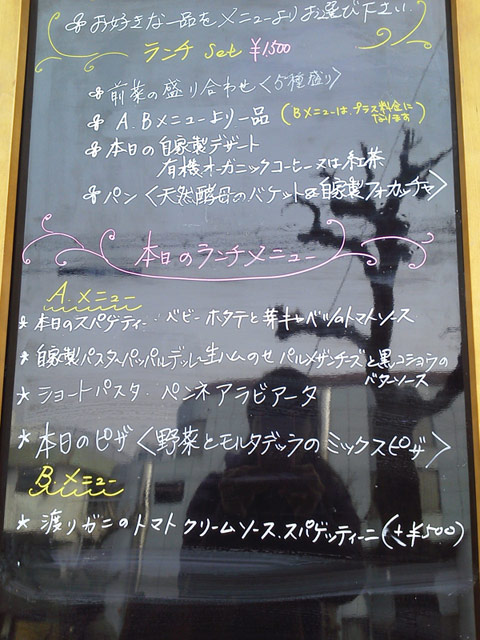 お好きな一品をメニューよりお選び下さい.
ランチ Set ¥1500
前菜の盛り合わせ〈5種盛り〉
A.Bメニューより一品 (Bメニューは、プラス料金になります)
本日の自家製デザート
有機オーガニックコーヒー又は紅茶
パン〈天然酵母のバケット&自家製フォカッチャ〉
本日のランチメニュー
A.メニュー
★本日のスパゲティー・ベビーホタテと芽キャベツのトマトソース
★自家製パスタパッパルデッレ生ハムのせ パルメザンチーズと黒コショウの
バターソース
★ショートパスタ・ペンネアラビアータ
★本日のピザ〈野菜とモルタデッラのミックスピザ〉
B.メニュー
★渡りガニのトマトクリームソース.スパゲッティーニ(+¥500)